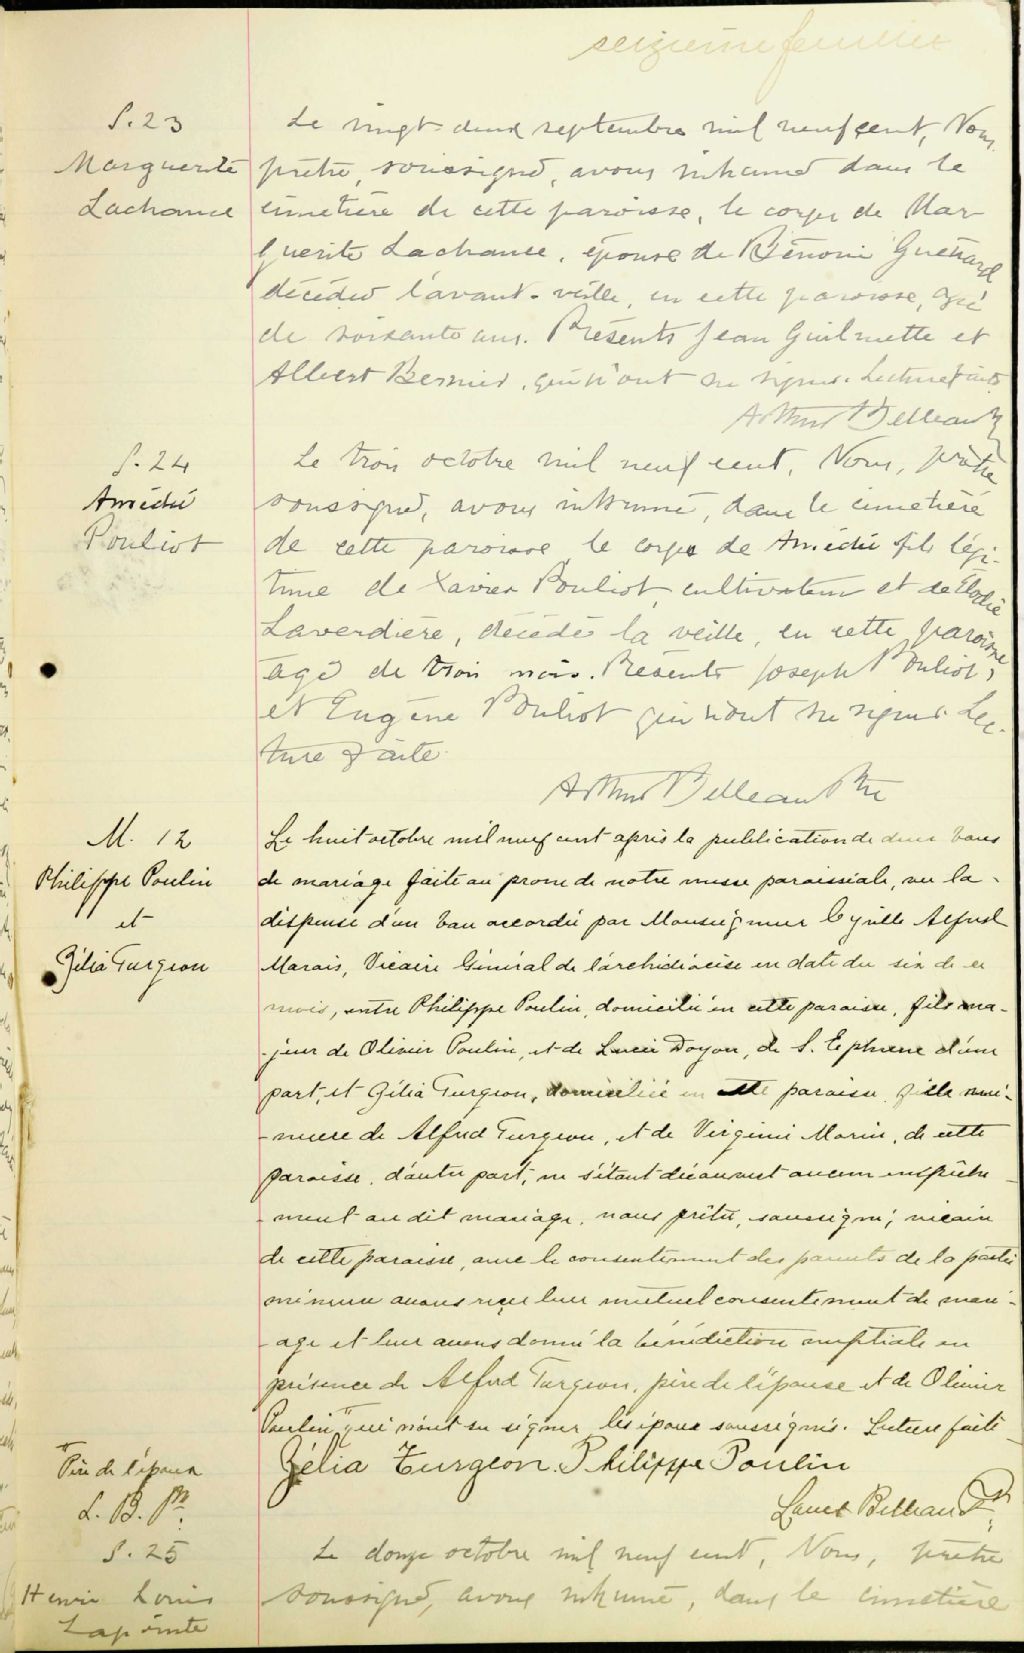 seizième feuillet
S. 23
Marguerite
Lachance
Le vingt-deux septembre mil neuf cent, Nous,
prêtre, soussigné, avons inhumé dans le
cimetière de cette paroisse, le corps de Mar-
guerite Lachance, épouse de Bénoni Guénard
décédée l'avant-veille, en cette paroisse, agée
de soixante ans. Présents Jean Guilmette et
Albert Bernier, qui n'ont su signer. Lecture faite
Arthur Belleau
S. 24
Amédé
Pouliot
Le trois octobre mil neuf cent, Nous, prêtre
soussigné, avons inhumé, dans le cimetière
de cette paroisse le corps de Amédé fils légi-
time de Xavier Pouliot cultivateur et de Elodie
Laverdière, décédé la veille, en cette paroisse,
agé de trois mois. Présents Joseph Pouliot,
et Eugène Pouliot qui n'ont su signer. Lec-
ture faite.
Arthur Belleau Ptre
M. 12
Philippe Poulin
et
Zélia Turgeon
Le huit octobre mil neuf cent après la publication de deux bans
de mariage faite au prone de notre messe paroissiale, vu la
dispense d'un ban accordée par Monseigneur Cyrille Alfred
Marois, Vicaire Général de l'archidiocèse en date du six de ce
mois, entre Philippe Poulin, domicilié en cette paroisse, fils ma-
-jeur de Olivier Poulin, et de Lucie Doyon, de S. Ephrem d'une
part, et Zélia Turgeon, domiciliée en cette paroisse, fille mi-
-neure de Alfred Turgeon, et de Virginie Morin, de cette
paroisse, d'autre part, ne s'étant découvert aucun empêche
-ment au dit mariage, nous prêtre, soussigné, vicaire
de cette paroisse, avec le consentement des parents de la partie
mineure avons reçu leur mutuel consentement de mari-
-age et leur avons donné la bénédiction nuptiale en
présence de Alfred Turgeon, père de l'épouse et de Olivier
Poulin + qui n'ont su signer les époux soussignés. Lecture faite
+
Père de l'époux
L. B. Ptre
Zélia Turgeon. Philippe Poulin
Belleau Ptre
S. 25
Henri Louis
Lapointe
Le douze octobre mil neuf cent, Nous, prêtre
soussigné, avons inhumé, dans le cimetière